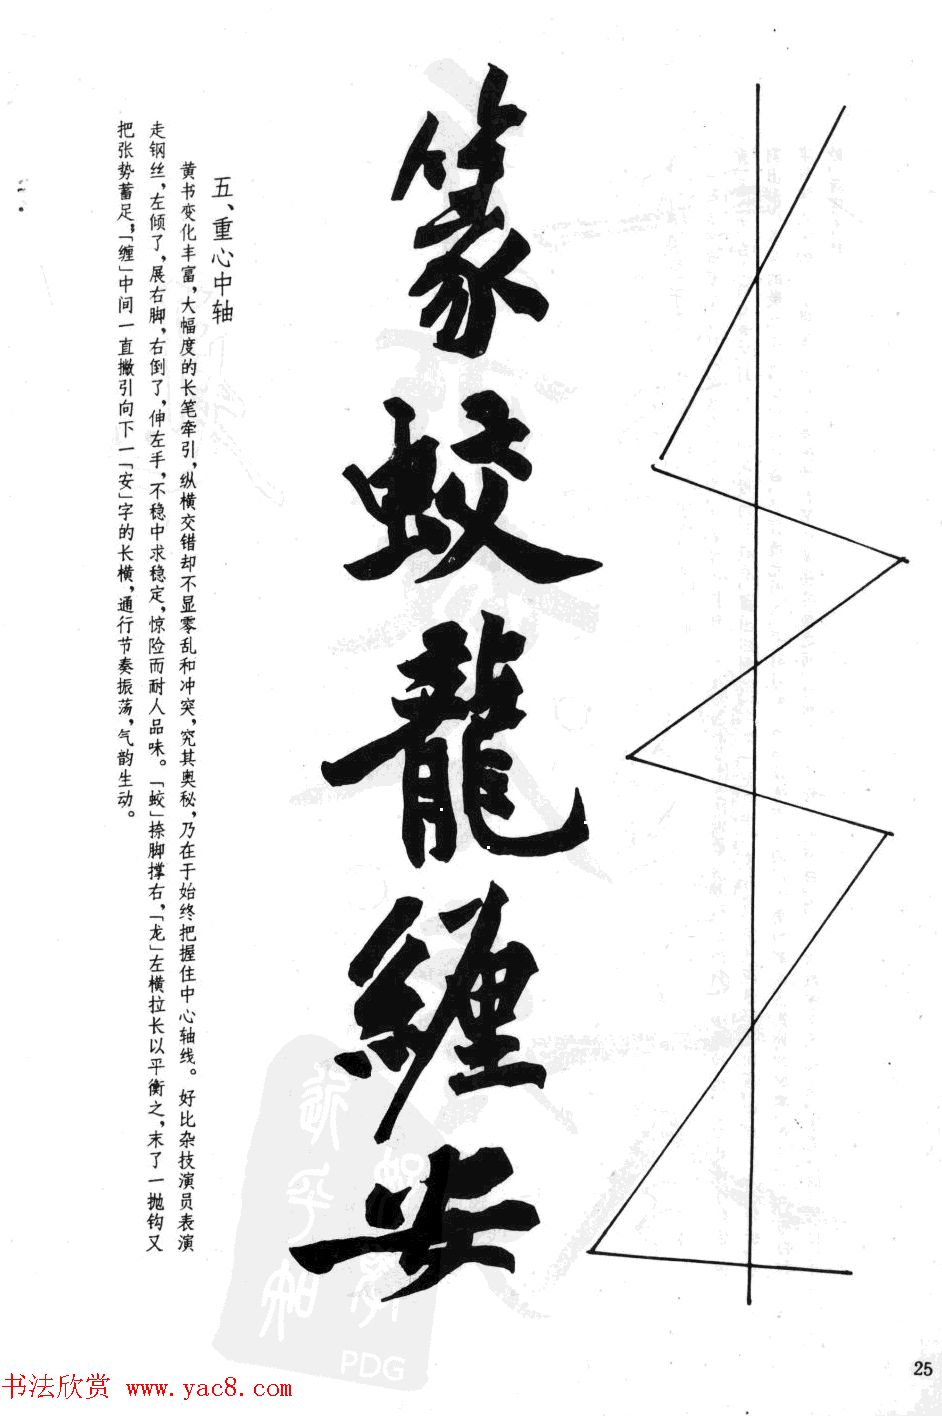 篆蛟龍纏安
五、重心中轴
黄书变化丰富，大幅度的长笔牵引，纵横交错却不显零乱和冲突，究其奥秘，乃在于始终把握住中心轴线。好比杂技演员表演
走钢丝，左倾了，展右脚，右倒了，伸左手，不稳中求稳定，惊险而耐人品味。「蛟」捺脚撑右，「龙」左横拉长以平衡之，末了一抛钩又
把张势蓄足，「缠」中间一直撇引向下一「安」字的长横，通行节奏振荡，气韵生动。
PDG
25
书法欣赏 www.yac8.com